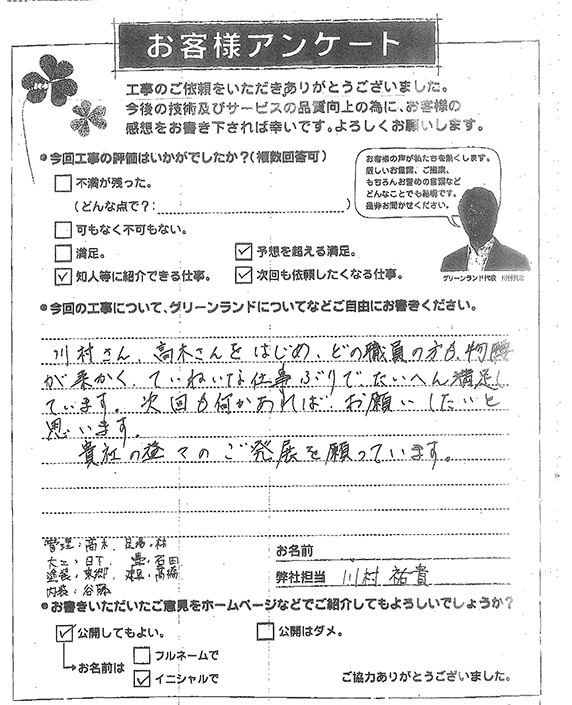 お客様アンケート
工事のご依頼をいただきありがとうございました。
今後の技術及びサービスの品質向上の為に、お客様の
感想をお書き下されば幸いです。よろしくお願いします。
●今回工事の評価はいかがでしたか？(複数回答可)
不満が残った。
(どんな点で？: )
可もなく不可もない。
満足。
予想を超える満足。
知人等に紹介できる仕事。
次回も依頼したくなる仕事。
お客様の声が私たちを動くします。
厳しいお言葉、ご提案、
もちろんお誉めの言葉など
どんなことでも結構です。
是非お聞かせください。
グリーンランド代表
●今回の工事について、グリーンランドについてなどご自由にお書きください。
川村さん、高木さんをはじめ、どの職員の方も、物腰
が柔かく、ていねいな仕事ぶりで、たいへん満足し
ています。次回も何かあれば、お願いしたいと
思います。
貴社の益々のご発展を願っています。
管理：高木、
大工：日下、石田
塗装：東郷、高橋
内装：谷藤
お名前
弊社担当 川村 祐貴
●お書きいただいたご意見をホームページなどでご紹介してもよろしいでしょうか？
公開してもよい。
公開はダメ。
→お名前は
フルネームで
イニシャルで
ご協力ありがとうございました。